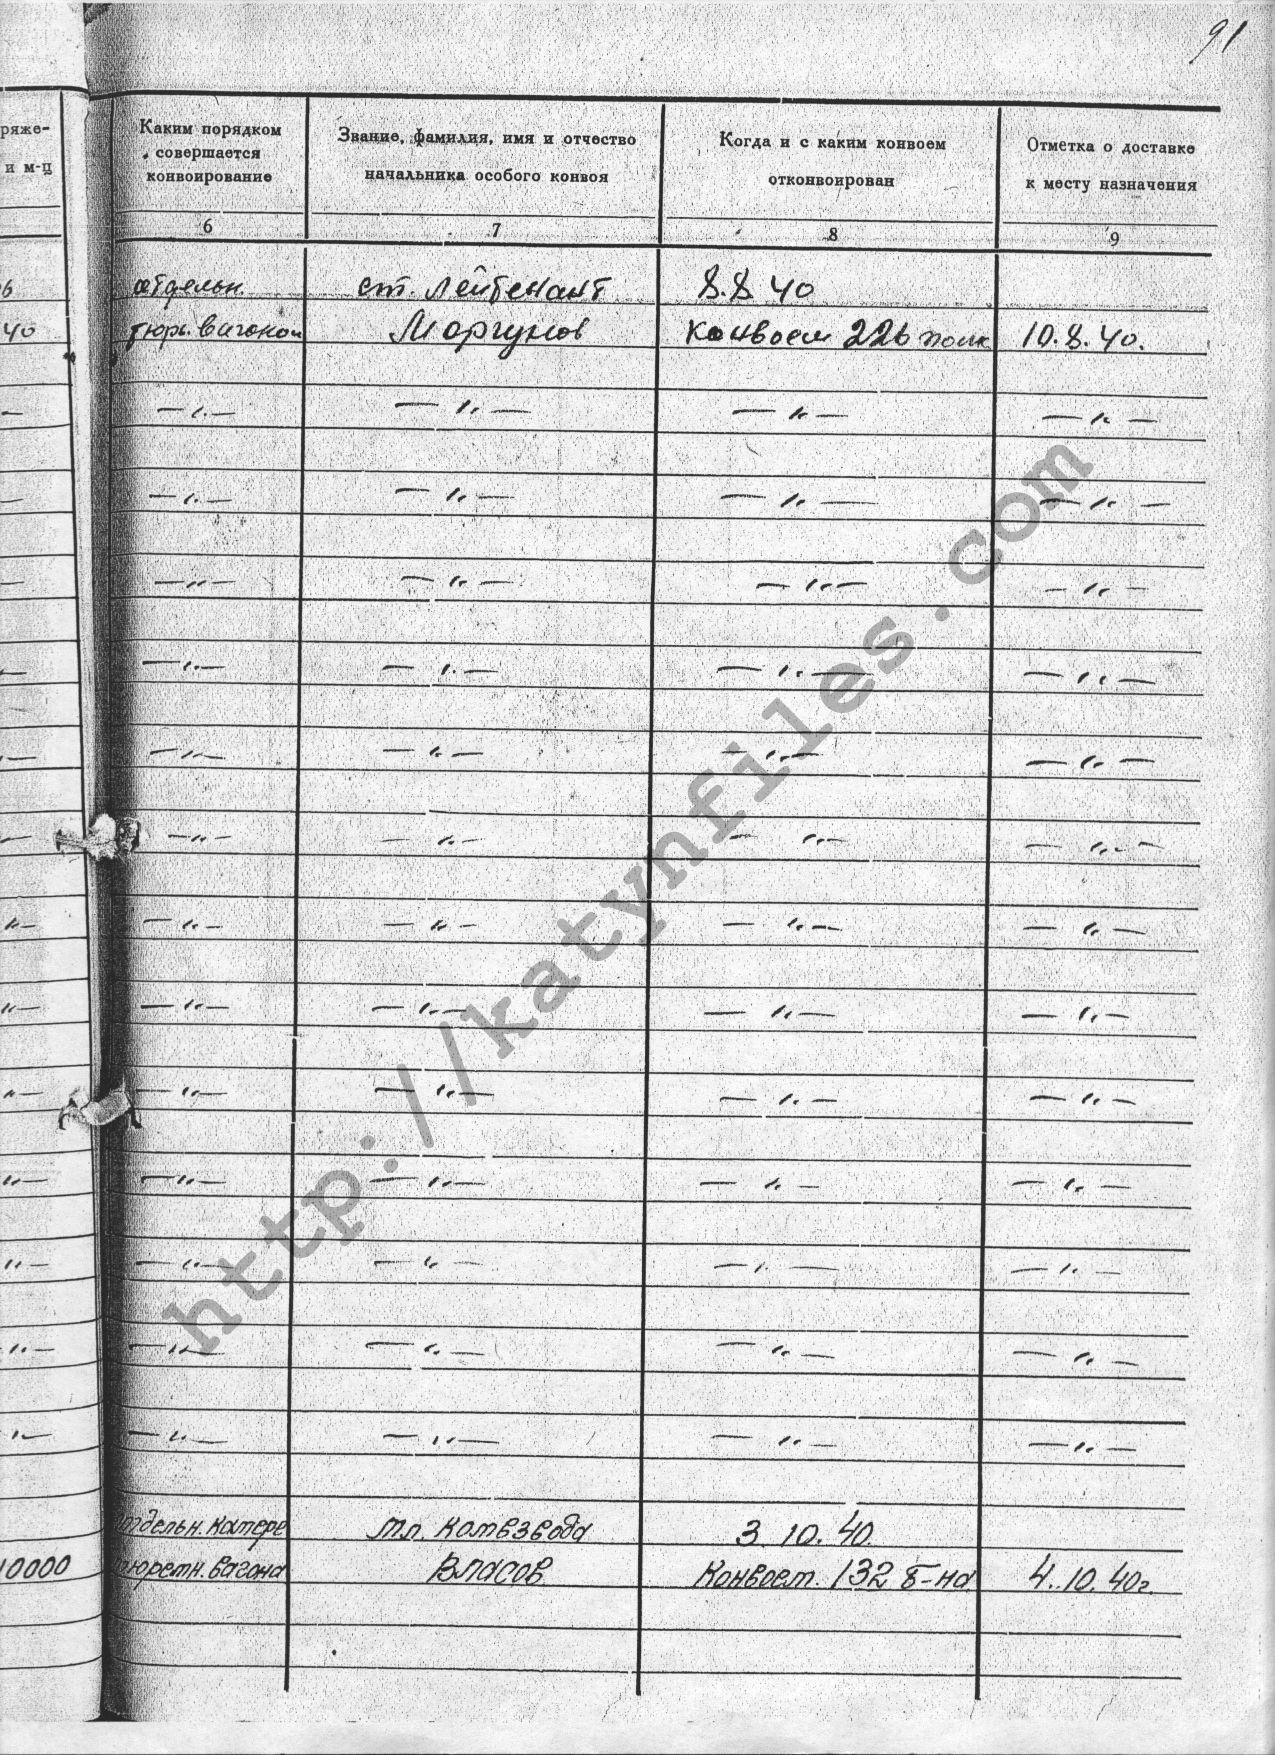 91
ряже-
и м-ц
Каким порядком
совершается
конвоирование
Звание, фамилия, имя и отчество
начальника особого конвоя
Когда и с каким конвоем
отконвоирован
Отметка о доставке
к месту назначения
6 7 8 9
отдельн. ст. лейтенант 8.8 40
40 тюрь. вагоном Моргунов Конвоем 226 полк 10.8.40.
— " — — " — — " — — " —
— " — — " — — " — — " —
— " — — " — — " — — " —
— " — — " — — " — — " —
— " — — " — — " — — " —
— " — — " — — " — — " —
" — — " — — " — — " — — " —
" — — " — — " — — " — — " —
" — — " — — " — — " — — " —
" — — " — — " — — " — — " —
" — — " — — " — — " — — " —
" — — " — — " — — " — — " —
" — — " — — " — — " — — " —
отдельн. камере мл. комвзвода 3. 10. 40.
10000 тюремн. вагона Власов Конвоем. 132 б-на 4. 10. 40г.
http://katynfiles.com